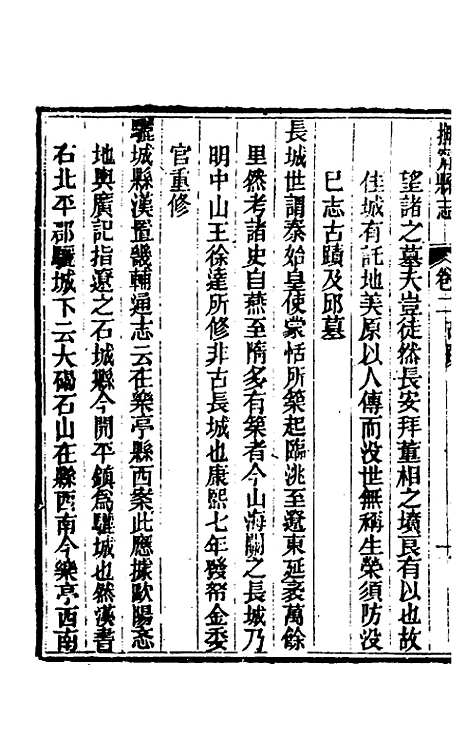 撫寧縣志 卷二
望諸之墓夫豈徒然長安拜董相之墳良有以也故
佳城有託地美原以人傳而沒世無稱生榮須防沒
巳志古蹟及邱墓
長城世謂秦始皇使蒙恬所築起臨洮至遼東延袤萬餘
里然考諸史自燕至隋多有築者今山海關之長城乃
明中山王徐達所修非古長城也康熙七年發帑金委
官重修
驪城縣漢置畿輔通志云在樂亭縣西案此應據歐陽忞
地輿廣記指遼之石城縣今開平鎮為驪城也然漢書
右北平郡驪城下云大碣石山在縣西南今樂亭西南